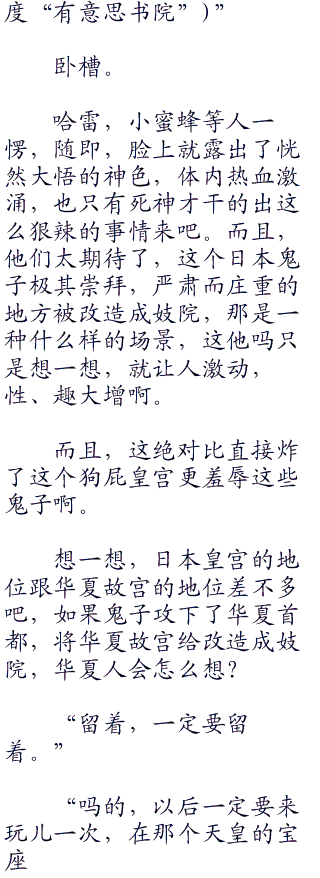 度“有意思书院”)”
卧槽。
哈雷，小蜜蜂等人一
愣，随即，脸上就露出了恍
然大悟的神色，体内热血激
涌，也只有死神才干的出这
么狠辣的事情来吧。而且，
他们太期待了，这个日本鬼
子极其崇拜，严肃而庄重的
地方被改造成妓院，那是一
种什么样的场景，这他吗只
是想一想，就让人激动，
性、趣大增啊。
而且，这绝对比直接炸
了这个狗屁皇宫更羞辱这些
鬼子啊。
想一想，日本皇宫的地
位跟华夏故宫的地位差不多
吧，如果鬼子攻下了华夏首
都，将华夏故宫给改造成妓
院，华夏人会怎么想？
“留着，一定要留
着。”
“吗的，以后一定要来
玩儿一次，在那个天皇的宝
座